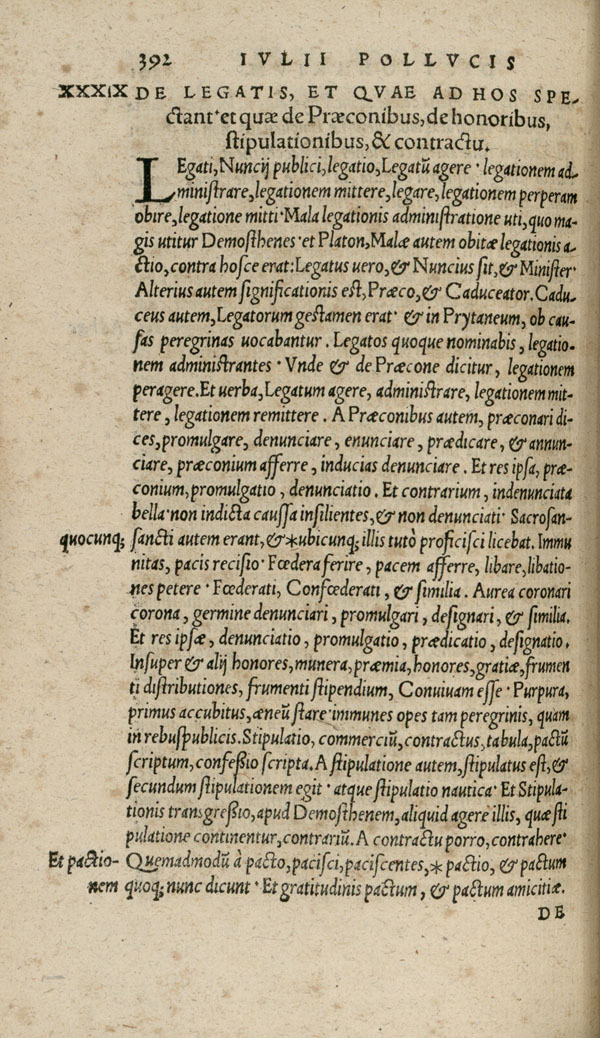 392 IVLII POLLVCIS
XXXIX DE LEGATIS, ET QVAE AD HOS SPE-
ctant·et quæ de Præconibus, de honoribus,
stipulationibus, & contractu.
LEgati, Nuncij publici, legatio, Legatũ agere · legationem ad-
ministrare, legationem mittere, legare, legationem perperam
obire, legatione mitti · Mala legationis administratione uti, quo ma-
gis utitur Demosthenes · et Platon, Malæ autem obitæ legationis a-
ctio, contra hosce erat: Legatus uero, & Nuncius sit, & Minister ·
Alterius autem significationis est, Præco, & Caduceator. Cadu-
ceus autem, Legatorum gestamen erat · & in Prytaneum, ob cau-
sas peregrinas uocabantur. Legatos quoque nominabis, legatio-
nem administrantes · Vnde & de Præcone dicitur, legationem
peragere. Et uerba, Legatum agere, administrare, legationem mit-
tere, legationem remittere. A Præconibus autem, præconari di-
ces, promulgare, denunciare, enunciare, prædicare, & annun-
ciare, præconium afferre, inducias denunciare. Et res ipsa, præ-
conium, promulgatio, denunciatio. Et contrarium, indenunciata
bella · non indicta caussa insilientes, & non denunciati · Sacrosan-
quocunq; sancti autem erant, &*ubicunq; illis tutò proficisci licebat. Immu
nitas, pacis recisio · Fœdera ferire, pacem afferre, libare, libatio-
nes petere · Fœderati, Confœderati, & similia. Aurea coronari
corona, germine denunciari, promulgari, designari, & similia.
Et res ipsæ, denunciatio, promulgatio, prædicatio, designatio.
Insuper & alij honores, munera, præmia, honores, gratiæ, frumen
ti distributiones, frumenti stipendium, Conuiuam esse · Purpura,
primus accubitus, æneũ stare · immunes opes tam peregrinis, quam
in rebuspublicis. Stipulatio, commerciũ, contractus, tabula, pactũ
scriptum, confeßio scripta. A stipulatione autem, stipulatus est, &
secundum stipulationem egit · atque stipulatio nautica · Et Stipula-
tionis transgreßio, apud Demosthenem, aliquid agere illis, quæ sti
pulatione continentur, contrariũ. A contractu porro, contrahere ·
Et pactio- Quemadmodũ à pacto, pacisci, paciscentes, * pactio, & pactum
nem quoq; nunc dicunt · Et gratitudinis pactum, & pactum amicitiæ.
DE